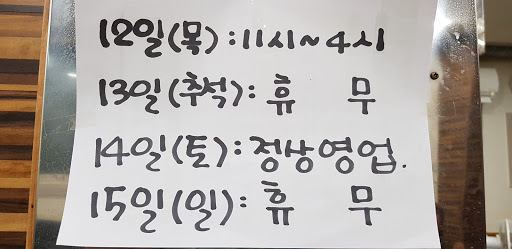 12일(목):11시~4시
13일(추석):휴 무
14일(토):정상영업.
15일(일):휴 무